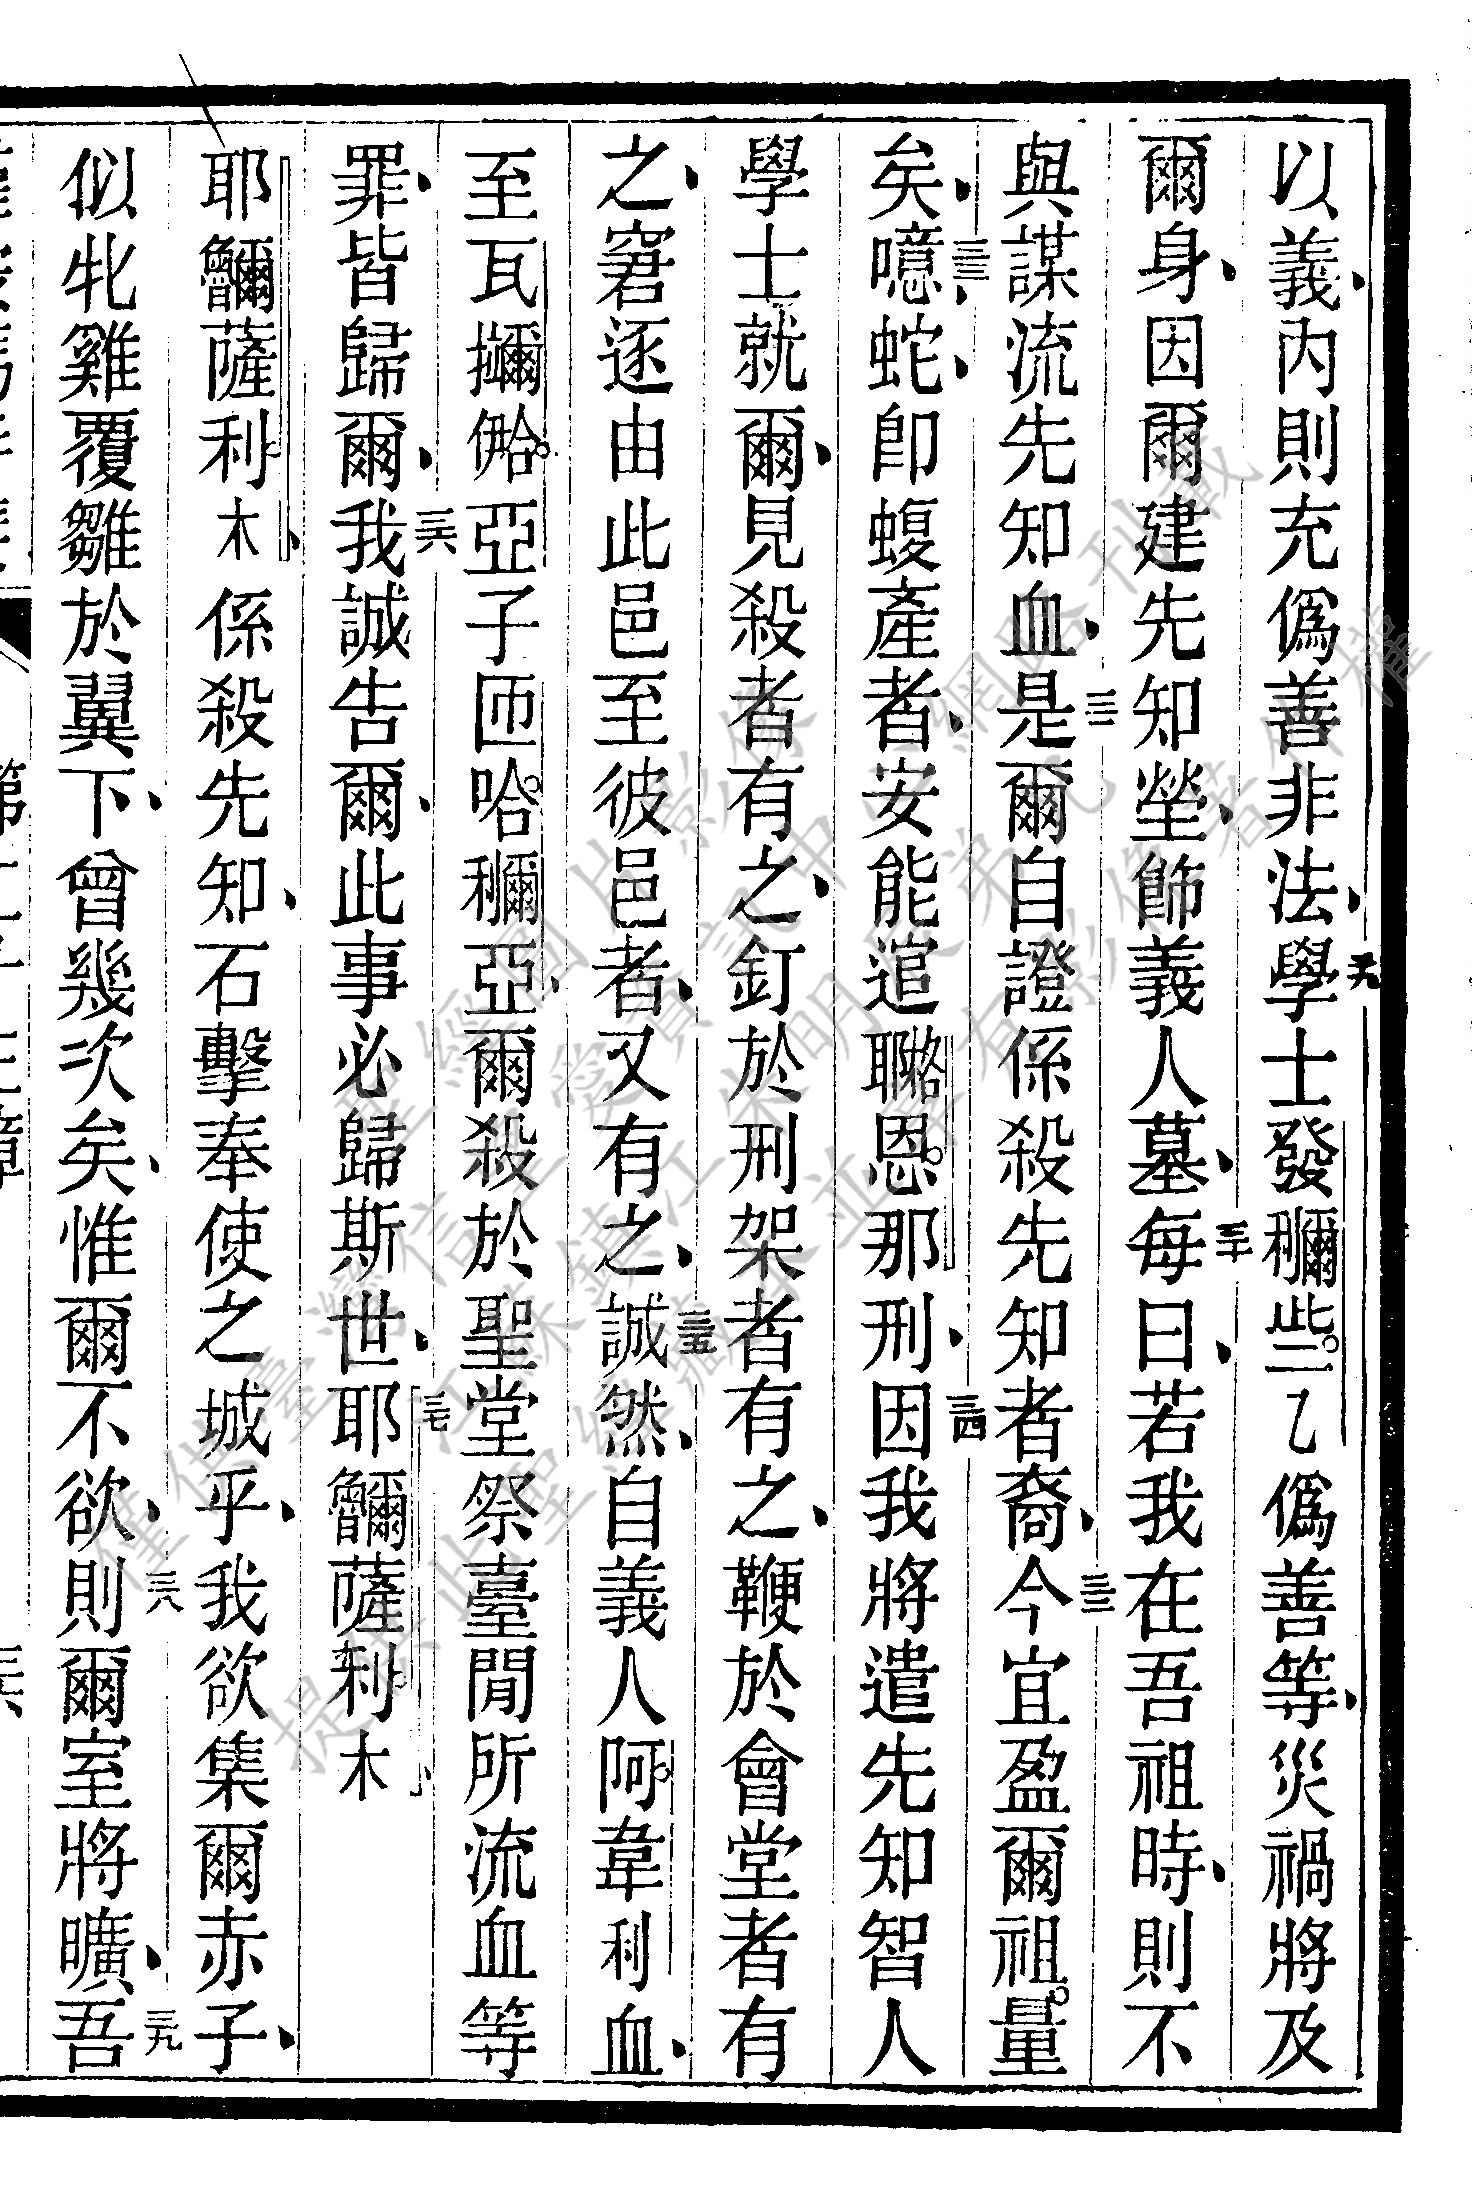 以義、內則充僞善非法、天學士發穪些乙僞善等、災禍將及
爾身、因爾建先知塋、飾義人墓、三十每曰、若我在吾祖時、則不
與謀流先知血、三一是爾自證係殺先知者裔、三二今宜盈爾祖量
矣、三三噫、蛇、卽蝮產者、安能逭聮恩那刑、三四因我將遣先知智人
學士就爾、見殺者有之、釘於刑架者有之、鞭於會堂者有
之、窘逐由此邑至彼邑者、又有之、三五誠然、自義人阿韋利血、
至瓦擟𠌥亞子匝哈穪亞、爾殺於聖堂祭臺閒所流血等
罪、皆歸爾、三六我誠告爾、此事必歸斯世、三七耶薩利木、
耶薩利木、係殺先知、石擊奉使之城乎、我欲集爾赤子、
似牝雞覆雛於翼下、曾幾次矣、惟爾不欲、三八則爾室將曠、三九吾
第二十三章